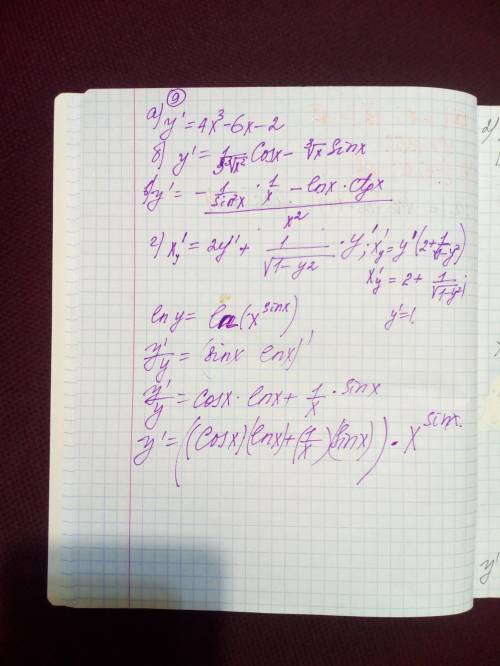 9
а) y' = 4x³ - 6x - 2
б) y' = 1/(3∛x²) cosx - ∛x sinx
в) y' = (- 1/sin²x · 1/x - lnx · ctgx)/x²
г) x'y = 2y' + 1/√(1-y2) · y'; x'y = y'(2 + 1/√(1-y²))
x'y = 2 + 1/√(1-y²)
y' = 1.
ln y = ln(x^sinx)
y'/y = (sinx lnx)'
y'/y = cosx · lnx + 1/x · sinx
y' = ((cosx)(lnx) + (1/x)(sinx)) · x^sinx.
2)
y'